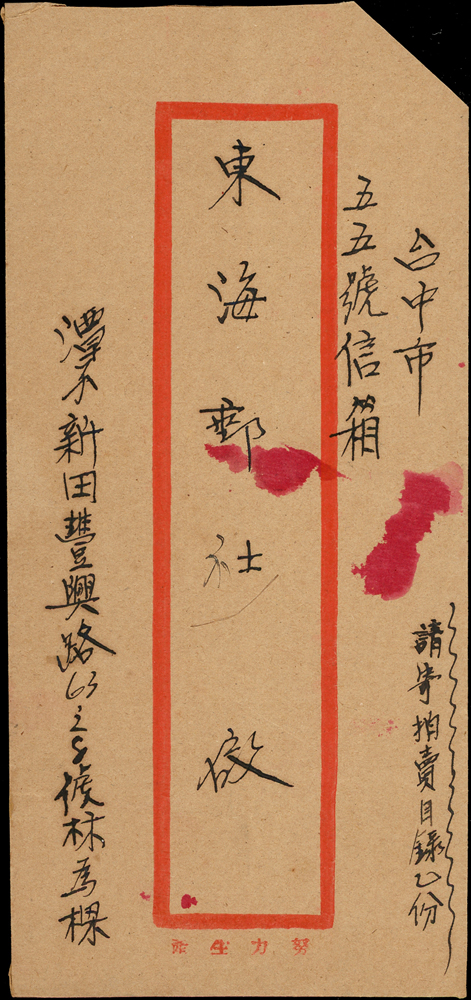 台中市
五五號信箱
東海郵社 啟
請寄拍賣目錄乙份
新田豐興路63之 號林為樑
努力生產